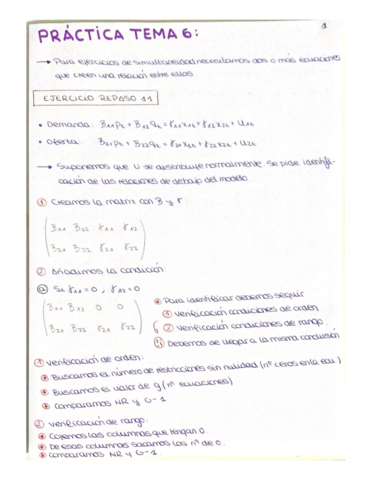 1
PRÁCTICA TEMA 6:
→ Para ejercicios de simultaneidad necesitamos dos o más ecuaciones
que creen una relación entre ellas
EJERCICIO REPASO 11
• Demanda: B11Pt + B12qt = γ11x1t + γ12x2t + u1t
• Oferta: B21Pt + B22qt = γ21x1t + γ22x2t + u2t
→ Suponemos que U se distribuye normalmente. Se pide identifi-
cación de las relaciones de debajo del modelo
① Creamos la matriz con B y γ.
B11 B22 γ11 γ12
B21 B22 γ21 γ22
② Añadimos la condición
ⓐ Si γ11 = 0, γ12 = 0
B11 B12 0 0
B21 B22 γ21 γ22
Para identificar debemos seguir
① verificación condiciones de orden
② verificación condiciones de rango.
Debemos de llegar a la misma conclusión
① verificación de orden:
Buscamos el número de restricciones sin nulidad (nº ceros en la ecu.)
Buscamos el valor de g (nº ecuaciones)
Comparamos NR y G-1
② verificación de rango.
Cogemos las columnas que tengan 0.
De esas columnas sacamos los nº de 0.
Comparamos NR y G-1.